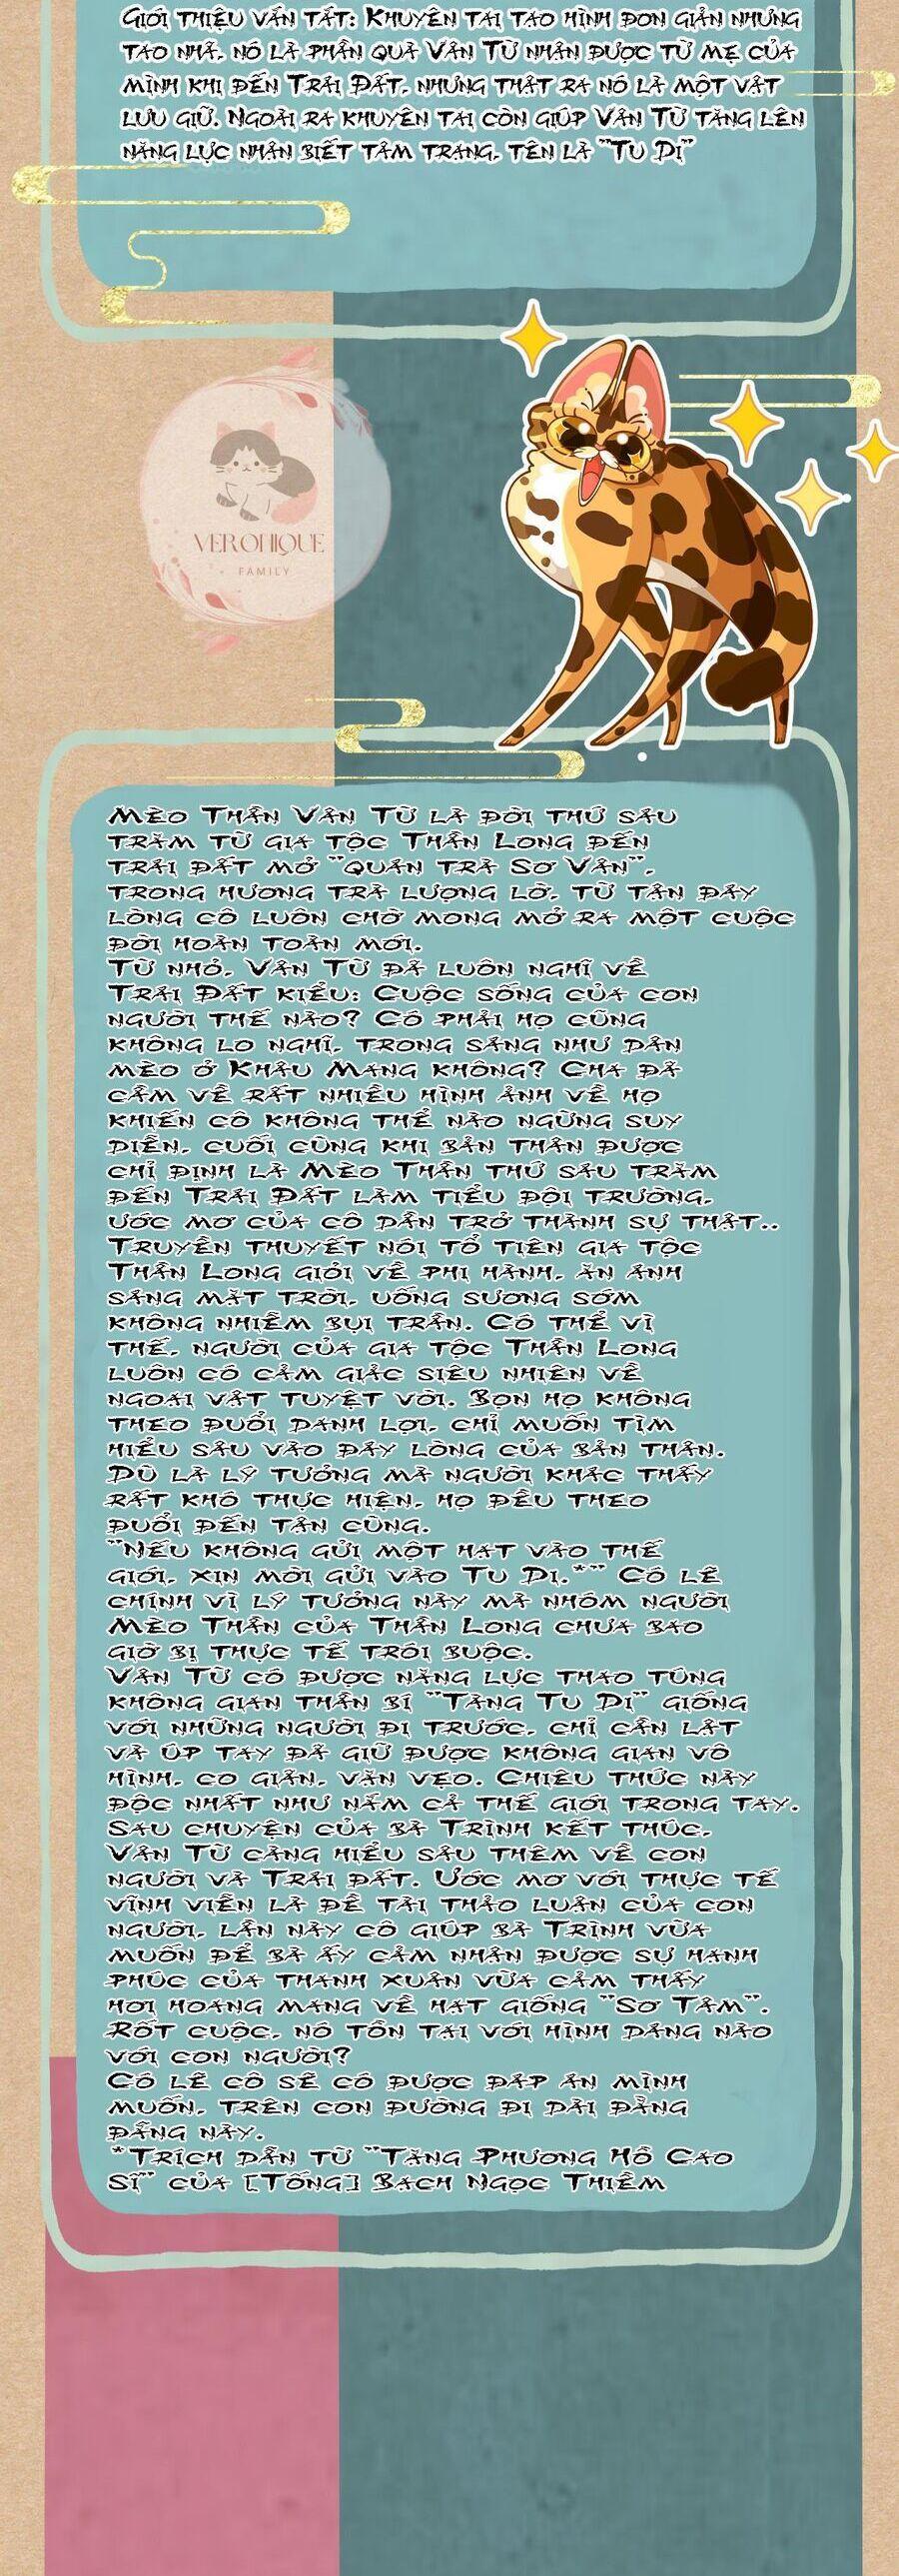 Giới thiệu vắn tắt: Khuyên tai tạo hình đơn giản nhưng
tao nhã, nó là phần quà Vân Từ nhận được từ mẹ của
mình khi đến Trái Đất, nhưng thật ra nó là một vật
lưu giữ. Ngoài ra khuyên tai còn giúp Vân Từ tăng lên
năng lực nhận biết tâm trạng, tên là "Tu Di"
VERONIQUE
FAMILY
Mèo Thần Vân Từ là đời thứ sáu
trăm từ gia tộc Thần Long đến
trái đất mở "quán trà Sơ Vân",
trong hương trà lượng lờ, từ tận đáy
lòng cô luôn chờ mong mở ra một cuộc
đời hoàn toàn mới.
Từ nhỏ, Vân Từ đã luôn nghĩ về
Trái Đất kiểu: Cuộc sống của con
người thế nào? Có phải họ cũng
không lo nghĩ, trong sáng như dân
mèo ở Khâu Mang không? Cha đã
cầm về rất nhiều hình ảnh về họ
khiến cô không thể nào ngừng suy
diễn, cuối cùng khi bản thân được
chỉ định là Mèo Thần thứ sáu trăm
đến Trái Đất làm tiểu đội trưởng,
ước mơ của cô dần trở thành sự thật..
Truyền thuyết nói tổ tiên gia tộc
Thần Long giỏi về phi hành, ăn ánh
sáng mặt trời, uống sương sớm
không nhiễm bụi trần. Có thể vì
thế, người của gia tộc Thần Long
luôn có cảm giác siêu nhiên về
ngoại vật tuyệt vời. Bọn họ không
theo đuổi danh lợi, chỉ muốn tìm
hiểu sâu vào đáy lòng của bản thân.
Dù là lý tưởng mà người khác thấy
rất khó thực hiện, họ đều theo
đuổi đến tận cùng.
"Nếu không gửi một hạt vào thế
giới, xin mời gửi vào Tu Di.*" Có lẽ
chính vì lý tưởng này mà nhóm người
Mèo Thần của Thần Long chưa bao
giờ bị thực tế trói buộc.
Vân Từ có được năng lực thao túng
không gian thần bí "Tàng Tu Di" giống
với những người đi trước, chỉ cần lật
và úp tay đã giữ được không gian vô
hình, co giãn, vặn vẹo. Chiêu thức này
độc nhất như nắm cả thế giới trong tay.
Sau chuyện của bà Trình kết thúc,
Vân Từ càng hiểu sâu thêm về con
người và Trái Đất. Ước mơ với thực tế
vĩnh viễn là đề tài thảo luận của con
người, lần này cô giúp bà Trình vừa
muốn để bà ấy cảm nhận được sự hạnh
phúc của thanh xuân vừa cảm thấy
hơi hoang mang về hạt giống "Sơ Tâm".
Rốt cuộc, nó tồn tại với hình dáng nào
với con người?
Có lẽ cô sẽ có được đáp án mình
muốn, trên con đường đi dài đằng
đẵng này.
*Trích dẫn từ "Tặng Phương Hồ Cao
Sĩ" của [Tống] Bạch Ngọc Thiềm